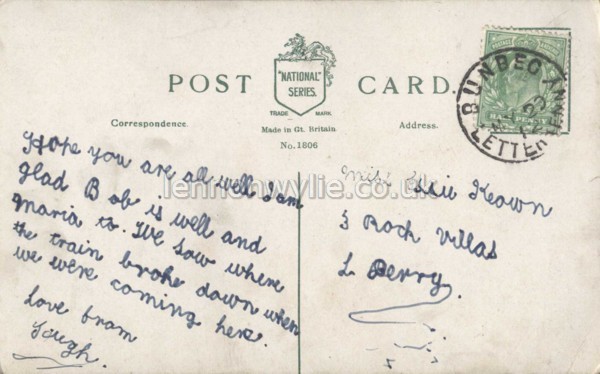 POST CARD.
"NATIONAL"
SERIES.
TRADE MARK.
Correspondence.
Made in Gt. Britain
Address.
No. 1806
POSTAGE
HALFPENNY
BUNBEG
LETTER
lennonwylie.co.uk
Hope you are all well I am
glad Bob is well and
Maria to. We saw where
the train broke down when
we were coming here.
Love from
Hugh.
Miss
Keown
3 Rock Villas
L Derry.